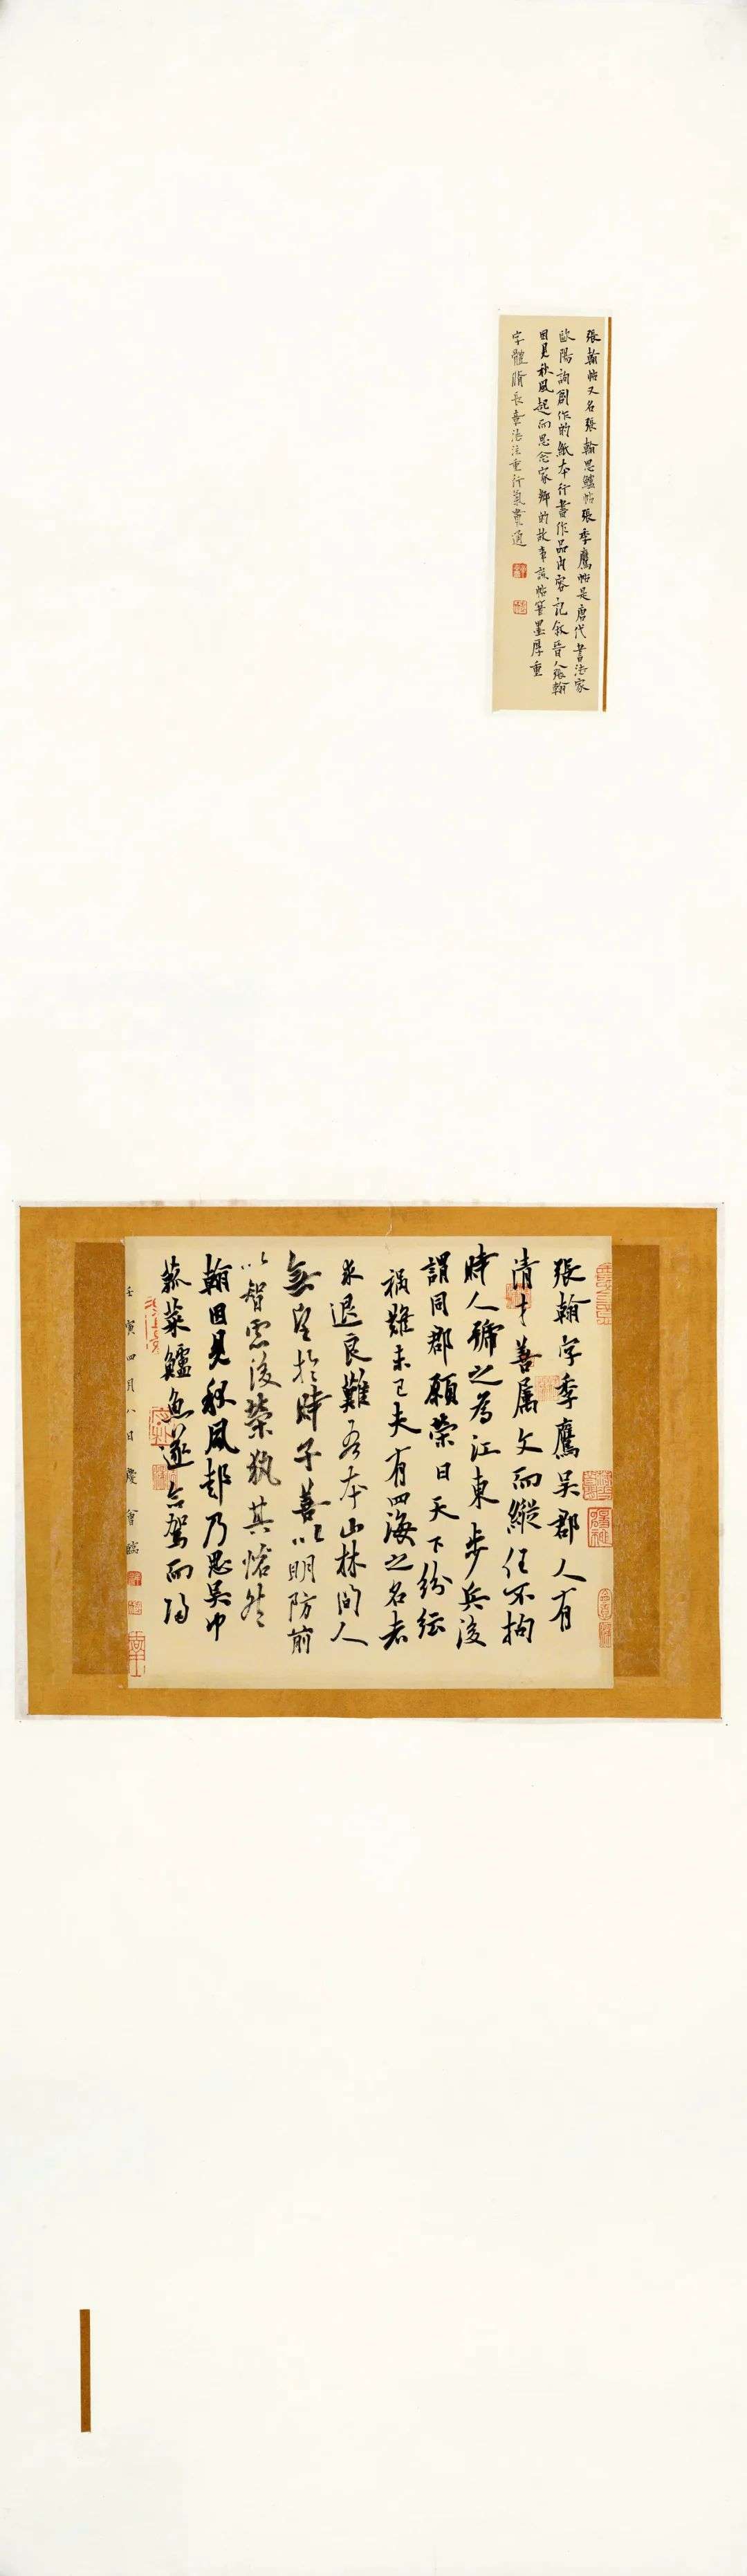 張翰帖又名張翰思鱸帖張季鷹帖是唐代書法家
歐陽詢創作的紙本行書作品內容記敘晉人張翰
因見秋風起而思念家鄉的故事該帖筆墨厚重
字體脩長章法注重行氣貫通
張翰字季鷹吳郡人有
清才善属文而縱任不拘
時人號之為江東步兵後
謂同郡顧榮曰天下紛紜
禍難未已夫有四海之名者
求退良難吾本山林間人
無望於時子善以明防前
以智慮後榮執其愴然
翰因見秋風起乃思吳中
菰菜鱸魚遂命駕而歸
壬寅四月八日慶會臨